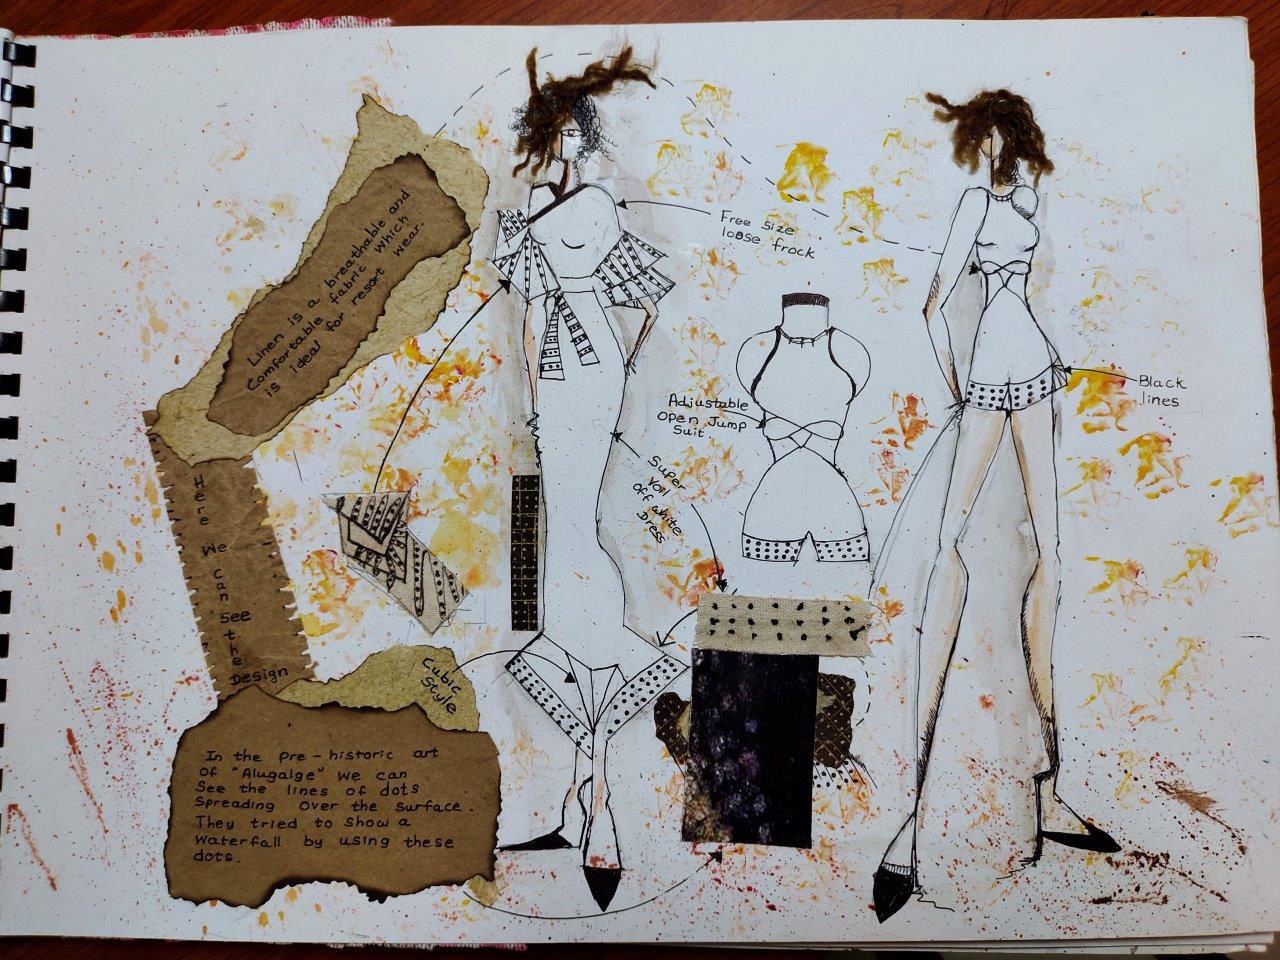 Linen is a breathable and
Comfortable fabric which
is ideal for resort wear.
Here
We
can
see
the
Design
Cubic
Style
In the pre-historic art
of "Alugalge" we can
See the lines of dots
Spreading over the surface.
They tried to show a
waterfall by using these
dots.
Free size
loose frock
Adjustable
Open Jump
Suit
Super
Voil
Off white
Dress
Black
lines